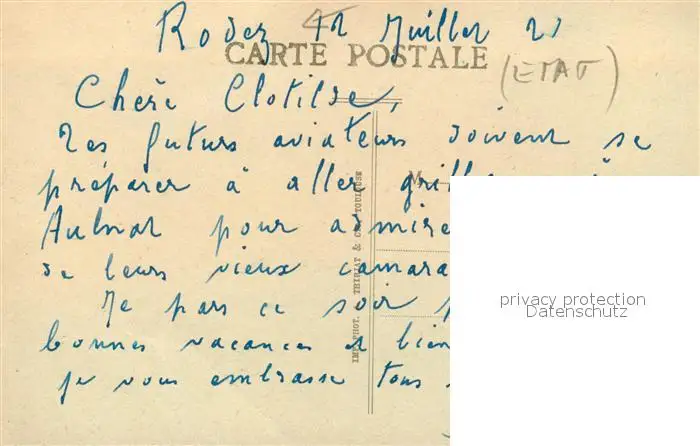 Rodez 12 Juillet 21
CARTE POSTALE
(ETAT)
Chère Clotilde,
Les futurs aviateurs doivent se
préparer à aller à
Aulnat pour admire
de leurs vieux camara
Je pars ce soir
bonnes vacances et bien
je vous embrasse tous
M
IMP. PHOT. THIRIAT & Cie TOULOUSE
privacy protection
Datenschutz